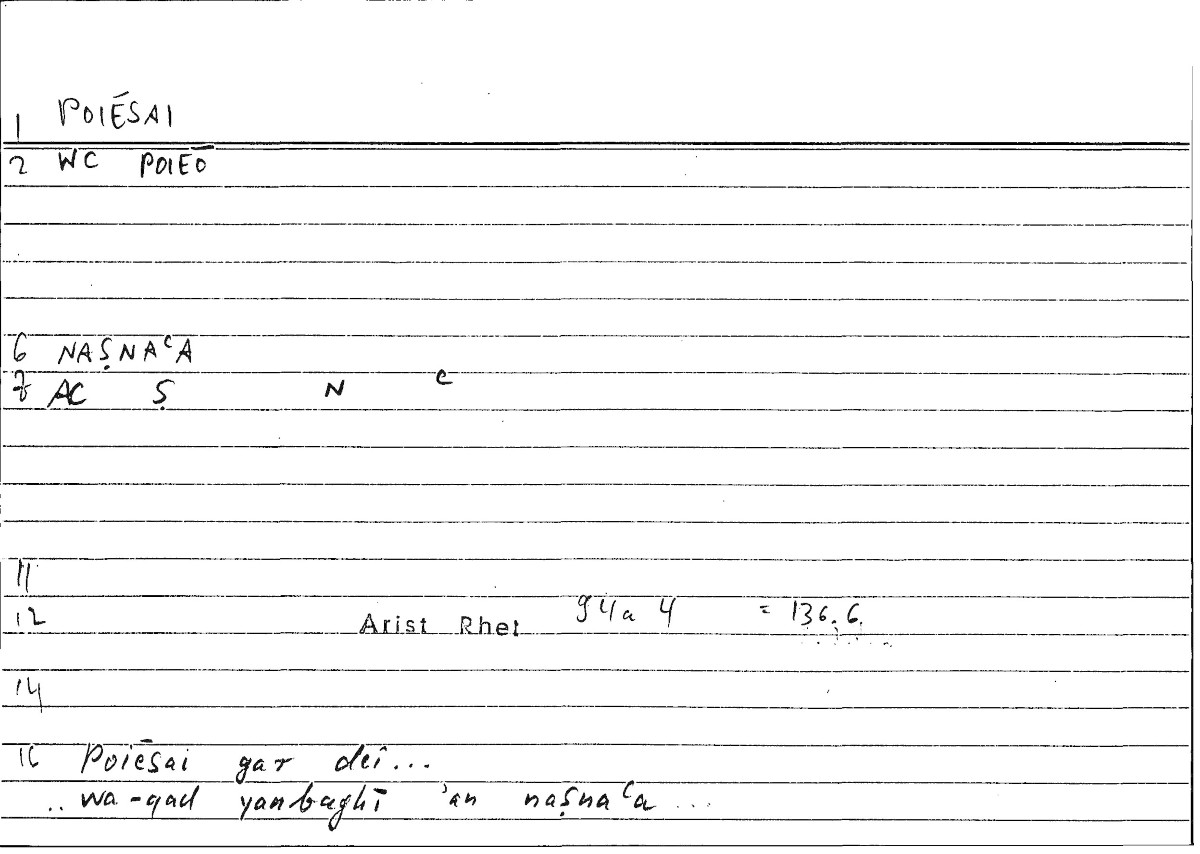 1 POIĒSAI
2 WC POIEŌ
6 NAṢNAᶜA
7 AC Ṣ N ᶜ
11
12 Arist Rhet 94a 4 = 136.6.
14
16 Poiēsai gar deî...
.. wa-qad yanbaghī ʾan naṣnaᶜa ...